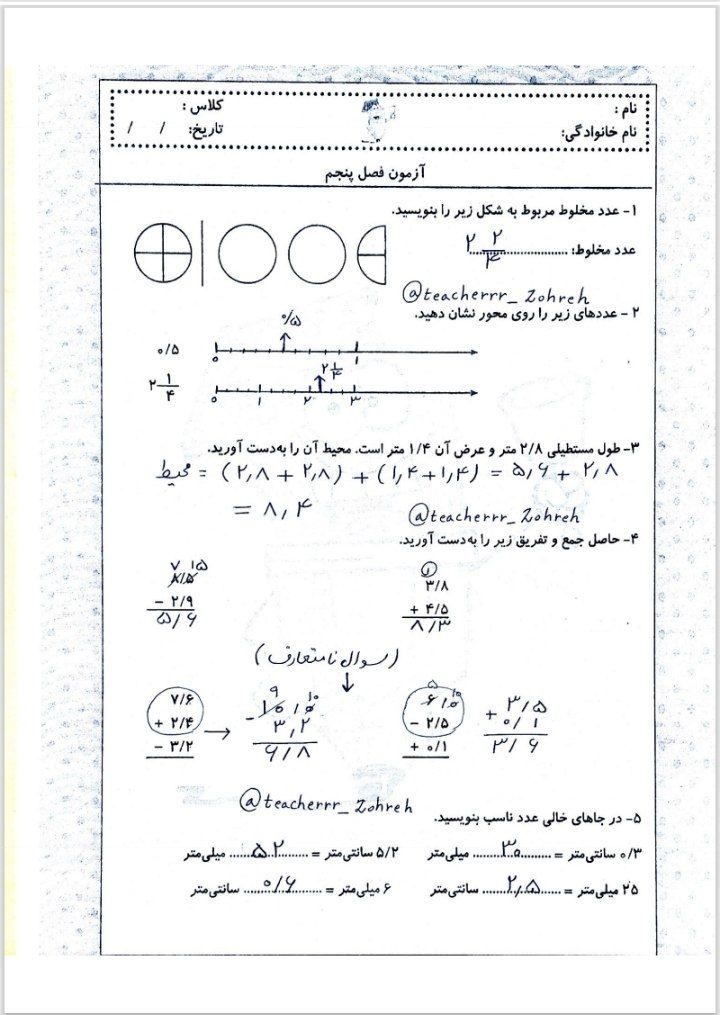 نام : کلاس :
نام خانوادگی: تاریخ: / /
آزمون فصل پنجم
۱- عدد مخلوط مربوط به شکل زیر را بنویسید.
عدد مخلوط: ۲ ۲/۴
@teacherrr_Zohreh
۲- عددهای زیر را روی محور نشان دهید.
۰/۵
۰/۵ ۰ ۱
۲ ۱/۴
۲ ۱/۴ ۰ ۱ ۲ ۳
۳- طول مستطیلی ۲/۸ متر و عرض آن ۱/۴ متر است. محیط آن را به‌دست آورید.
محیط = (۲٫۸ + ۲٫۸) + (۱٫۴+۱٫۴) = ۵٫۶ + ۲٫۸
= ۸٫۴
@teacherrr_Zohreh
۴- حاصل جمع و تفریق زیر را به‌دست آورید.
۱ ۷ ۱۵
۳/۸ ۸/۵
+ ۴/۵ - ۲/۹
۸/۳ ۵/۶
(سوال نامتعارف)
۵ ۱۰ ۹ ۱۰
۷/۶ ۱۰٫۰ ۶/۰ ۳/۵
+ ۲/۴ - ۳٫۲ - ۲/۵ + ۰/۱
- ۳/۲ ۶/۸ + ۰/۱ ۳/۶
@teacherrr_Zohreh
۵- در جاهای خالی عدد ناسب بنویسید.
۰/۳ سانتی‌متر = ...۳۰... میلی‌متر ۵/۲ سانتی‌متر = ...۵۲... میلی‌متر
۲۵ میلی‌متر = ...۲٫۵... سانتی‌متر ۶ میلی‌متر = ...۰/۶... سانتی‌متر